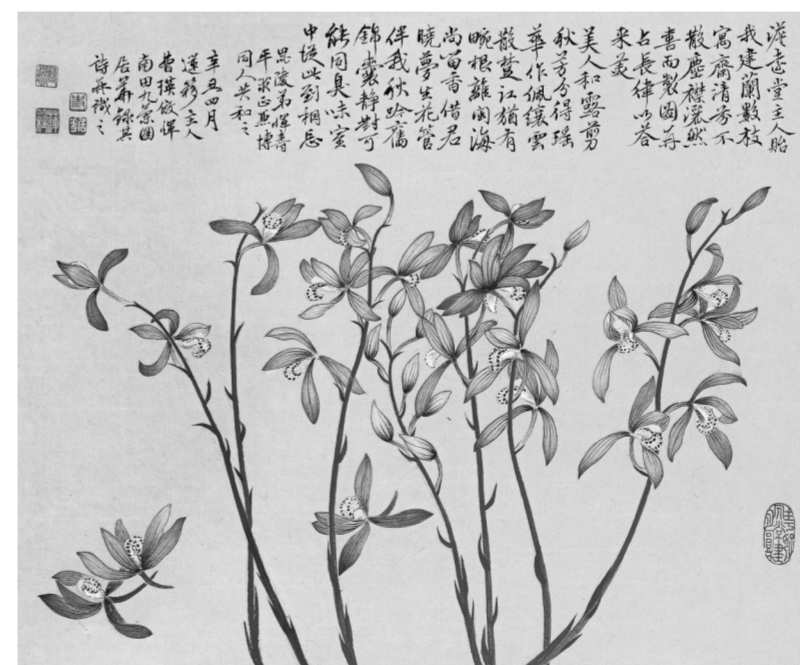 堂主人貽
我建蘭數枝
寓齋清芳不
散塵襟灑然
書而製圖并
占長律以答
来美
美人和露剪
秋芳分得瑶
華作佩纕雲
散楚江猶有
畹根離閩海
尚留香借君
曉夢生花管
伴我秋吟舊
錦囊静對可
能同臭味室
中從此到相忘
毘陵弟惲壽
平求正並博
同人共和之
辛丑四月
主人
倣惲
南田圖
錄其
詩并識之